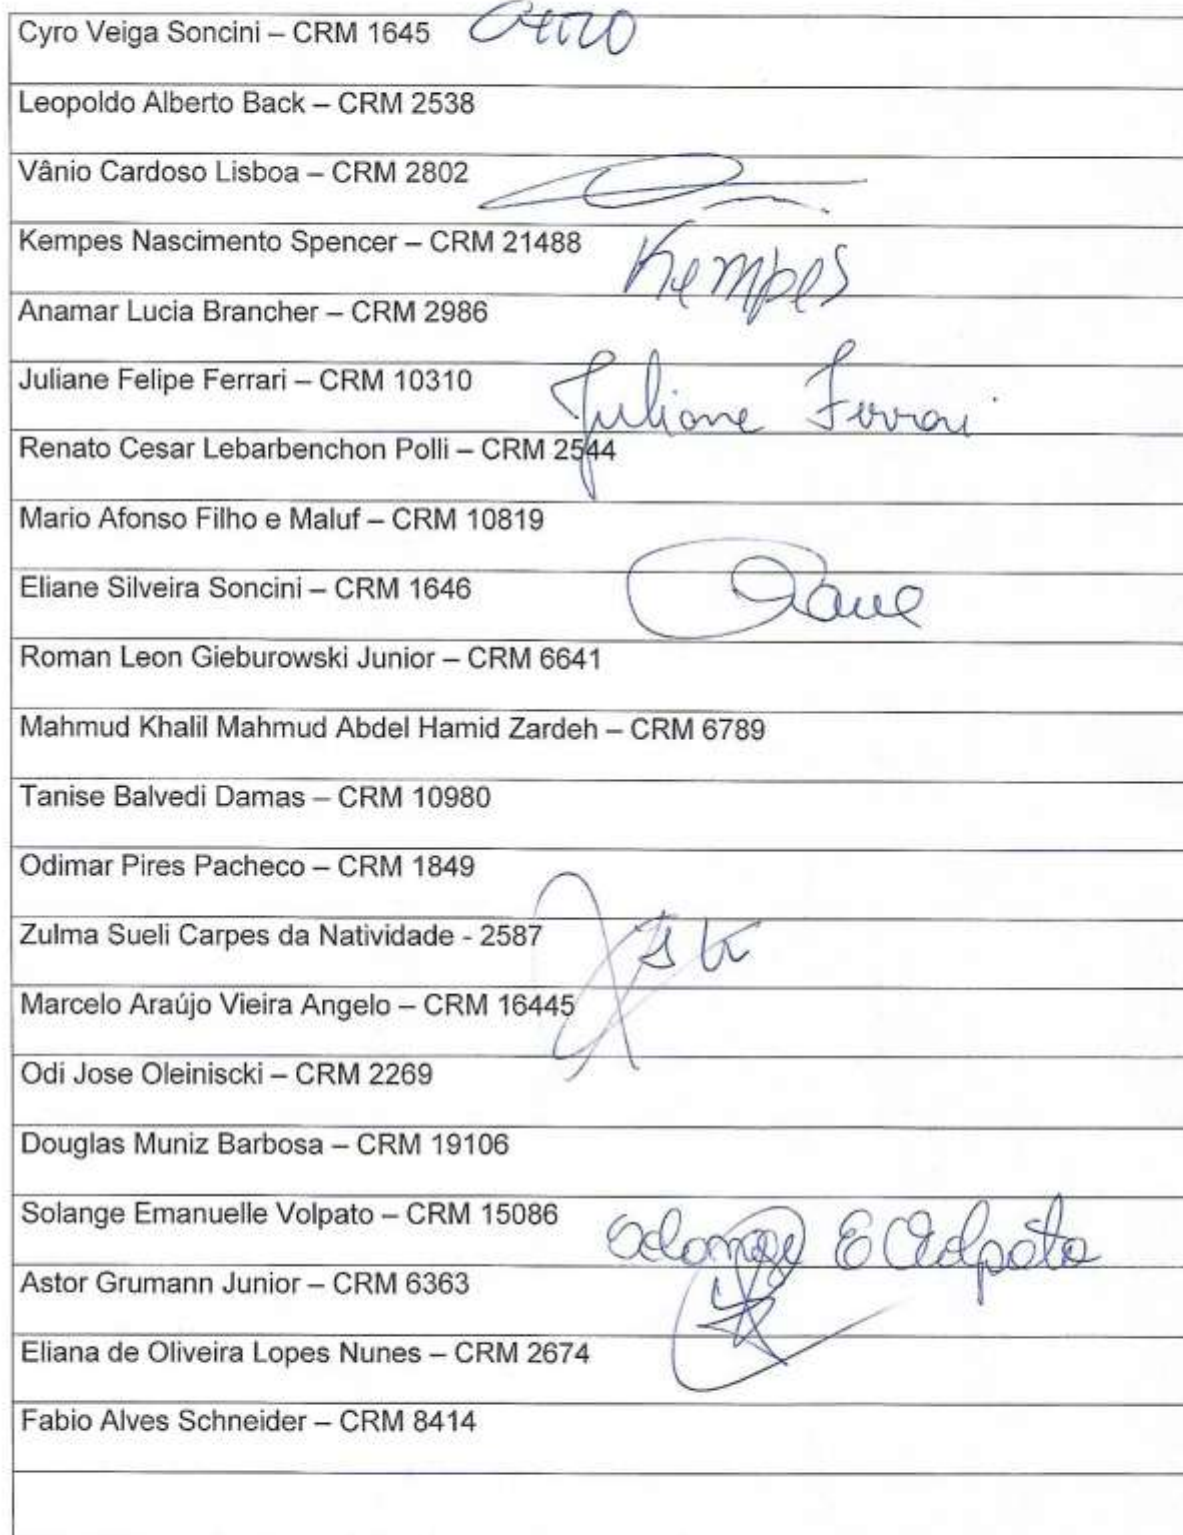 Cyro Veiga Soncini – CRM 1645
Leopoldo Alberto Back – CRM 2538
Vânio Cardoso Lisboa – CRM 2802
Kempes Nascimento Spencer – CRM 21488
Kempes
Anamar Lucia Brancher – CRM 2986
Juliane Felipe Ferrari – CRM 10310
Juliane Ferrari
Renato Cesar Lebarbenchon Polli – CRM 2544
Mario Afonso Filho e Maluf – CRM 10819
Eliane Silveira Soncini – CRM 1646
Roman Leon Gieburowski Junior – CRM 6641
Mahmud Khalil Mahmud Abdel Hamid Zardeh – CRM 6789
Tanise Balvedi Damas – CRM 10980
Odimar Pires Pacheco – CRM 1849
Zulma Sueli Carpes da Natividade - 2587
Marcelo Araújo Vieira Angelo – CRM 16445
Odi Jose Oleiniscki – CRM 2269
Douglas Muniz Barbosa – CRM 19106
Solange Emanuelle Volpato – CRM 15086
Solange E Volpato
Astor Grumann Junior – CRM 6363
Eliana de Oliveira Lopes Nunes – CRM 2674
Fabio Alves Schneider – CRM 8414